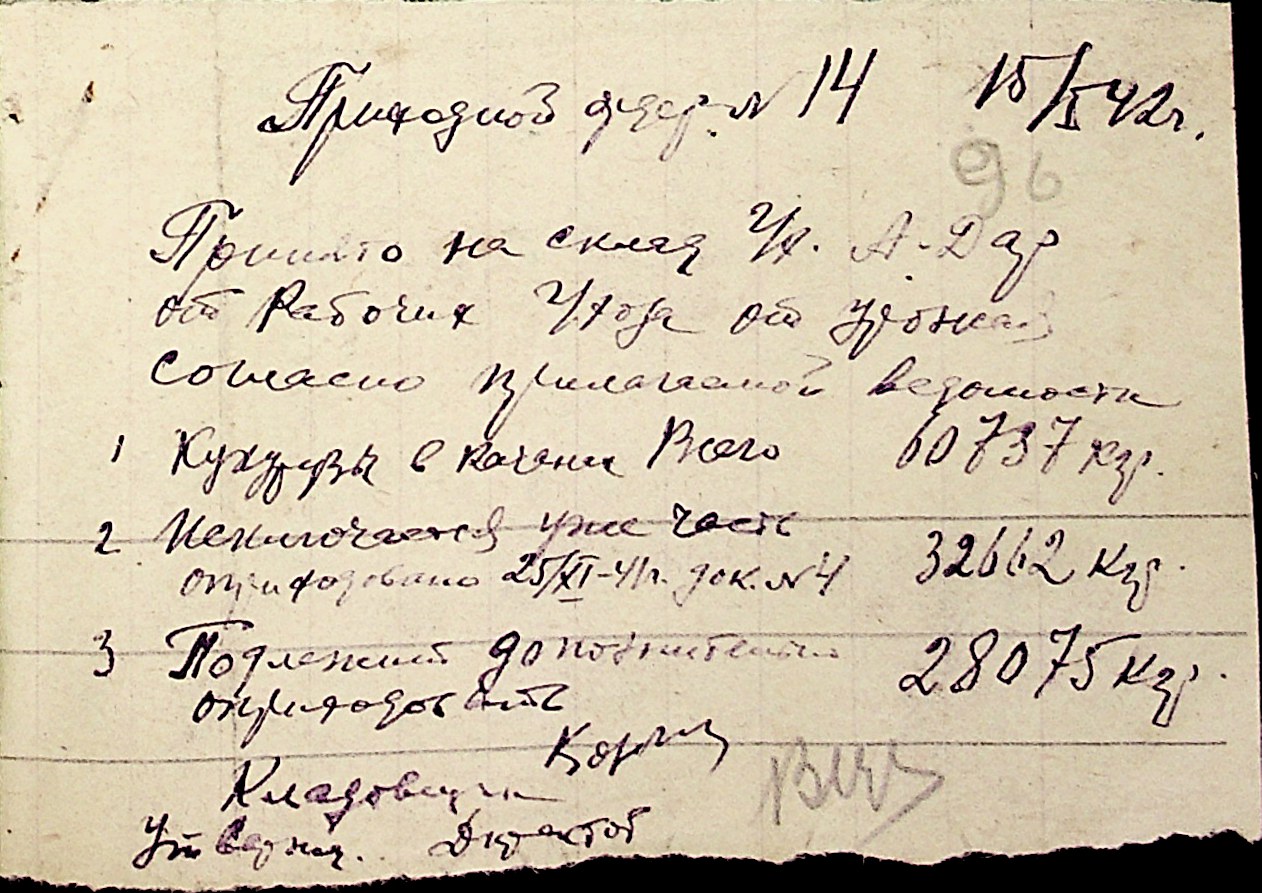 Приходной ордер № 14 15/I 42 г.
96
Принято на склад Г/х. А-Дар
от Рабочих Г/хоза от урожая
согласно прилагаемой ведомости
1 Кукурузы в качани Всего 60737 кгр.
2 Исключается уже часть
оприходовано 25/XI-41 г. док. № 4 32662 кгр.
3 Подлежит дополнительно 28075 кгр.
оприходовать
Кладовщик
Утвержд. Директор